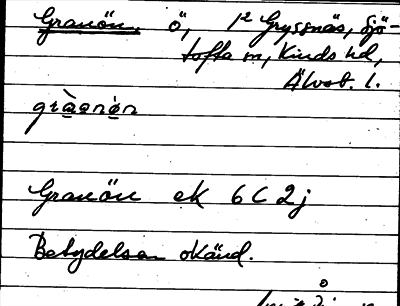 Granön, ö, 1² Gryssnäs, Sjö-
tofta sn, Kinds hd,
Älvsb. l.
gràanön
Granön ek 6C2j
Betydelsen okänd.